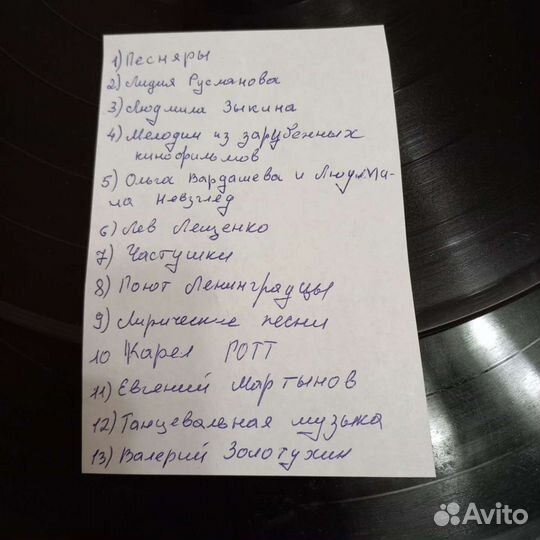 1) Песняры
2) Лидия Русманова
3) Людмила Зыкина
4) Мелодии из зарубенных
кинофильмов
5) Ольга Вардашева и Людми-
ла Невзглед
6) Лев Лещенко
7) Частушки
8) Поют Ленинградцы
9) Лирические песни
10 Карел ГОТТ
11) Евгений Мартынов
12) Танцевальная музыка
13) Валерий Золотухин
Avito